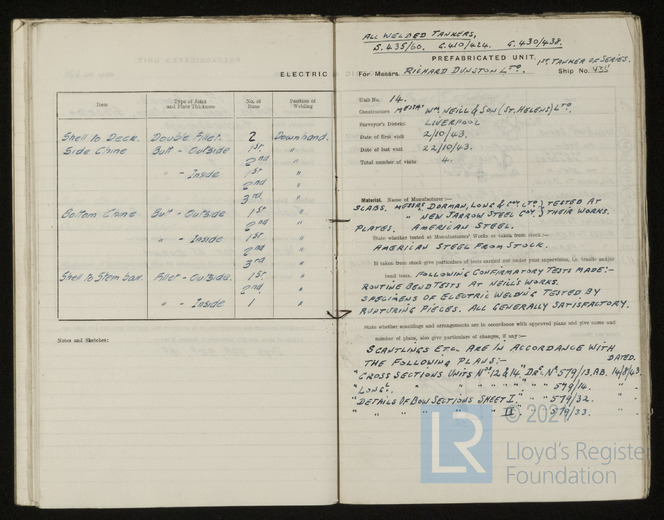 ELECTRIC
Item
Type of Joint and Plate Thickness
No. of Runs
Position of Welding
Shell to Deck. Double Fillet. 2 Downhand.
Side Chine Butt - Outside 1st "
2nd "
" - Inside 1st "
2nd "
3rd "
Bottom Chine Butt - Outside 1st "
2nd "
" - Inside 1st "
2nd "
3rd "
Shell to Stem bar. Fillet - Outside. 1st "
2nd "
" - Inside 1 "
Notes and Sketches:
ALL WELDED TANKERS,
S.435/60. G.410/424. G.430/438.
PREFABRICATED UNIT. 1st TANKER OF SERIES.
For Messrs. RICHARD DUNSTON LTD. Ship No. 435
Unit No. 14.
Constructors MESSRS WM NEILL & SON (ST. HELENS) LTD.
Surveyor's District LIVERPOOL
Date of first visit 2/10/43.
Date of last visit 22/10/43.
Total number of visits 4.
Material. Name of Manufacturer:—
SLABS. MESSRS DORMAN, LONG & COY LTD } TESTED AT
" NEW JARROW STEEL COY } THEIR WORKS.
PLATES. AMERICAN STEEL.
State whether tested at Manufacturers' Works or taken from stock:—
AMERICAN STEEL FROM STOCK.
If taken from stock give particulars of tests carried out under your supervision, i.e. tensile and/or
bend tests. FOLLOWING CONFIRMATORY TESTS MADE:-
ROUTINE BEND TESTS AT NEILL'S WORKS.
SPECIMENS OF ELECTRIC WELDING TESTED BY
RUPTURING PIECES. ALL GENERALLY SATISFACTORY.
State whether scantlings and arrangements are in accordance with approved plans and give name and
number of plans, also give particulars of changes, if any:—
SCANTLINGS ETC. ARE IN ACCORDANCE WITH
THE FOLLOWING PLANS:- DATED.
"CROSS SECTIONS UNITS Nos 12 & 14" DRG. No 579/13.AB. 14/8/43.
"LONGL. " " " " " " " 579/14. " -
"DETAILS OF BOW SECTIONS SHEET I." " " 579/32. " -
" " " " " II." " " 579/33. " -
LR
© 2021
Lloyd's Register
Foundation